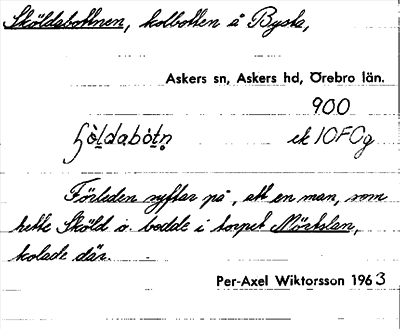 Sköldabottnen, kolbotten å Bysta,
Askers sn, Askers hd, Örebro län.
900
ek 10F0g
Förleden syftar på, att en man, som
hette Sköld o. bodde i torpet Mörtslan,
kolade där.
Per-Axel Wiktorsson 1963